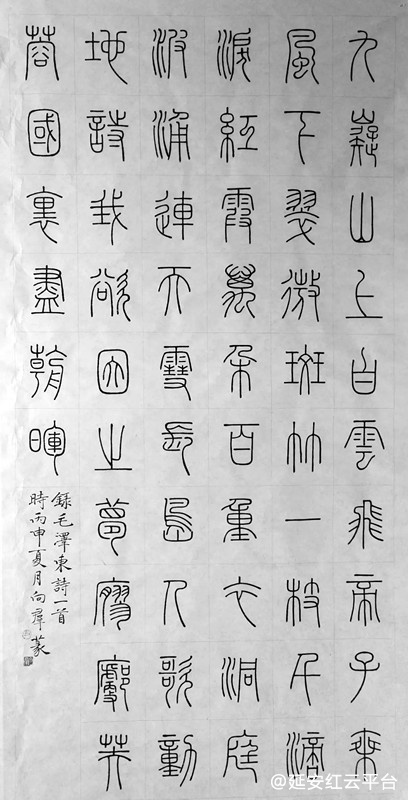 九嶷山上白雲飛帝子乘
風下翠微斑竹一枝千滴
淚紅霞萬朵百重衣洞庭
波涌連天雪長島人歌動
地詩我欲因之夢寥廓芙
蓉國裏盡朝暉
錄毛澤東詩一首
時丙申夏月向羣篆
@延安红云平台